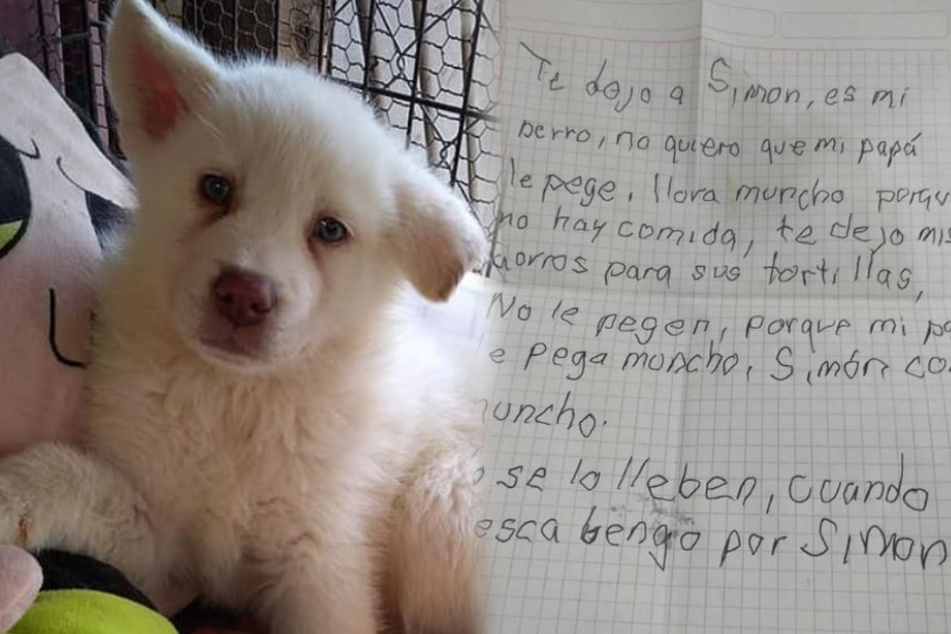 Te dejo a Simon, es mi
perro, no quiero que mi papá
le pege, llora muncho porqu
no hay comida, te dejo mis
horros para sus tortillas,
No le pegen, porque mi pa
e pega muncho, Simón co
uncho.
se lo lleben, cuando
esca bengo por Simon